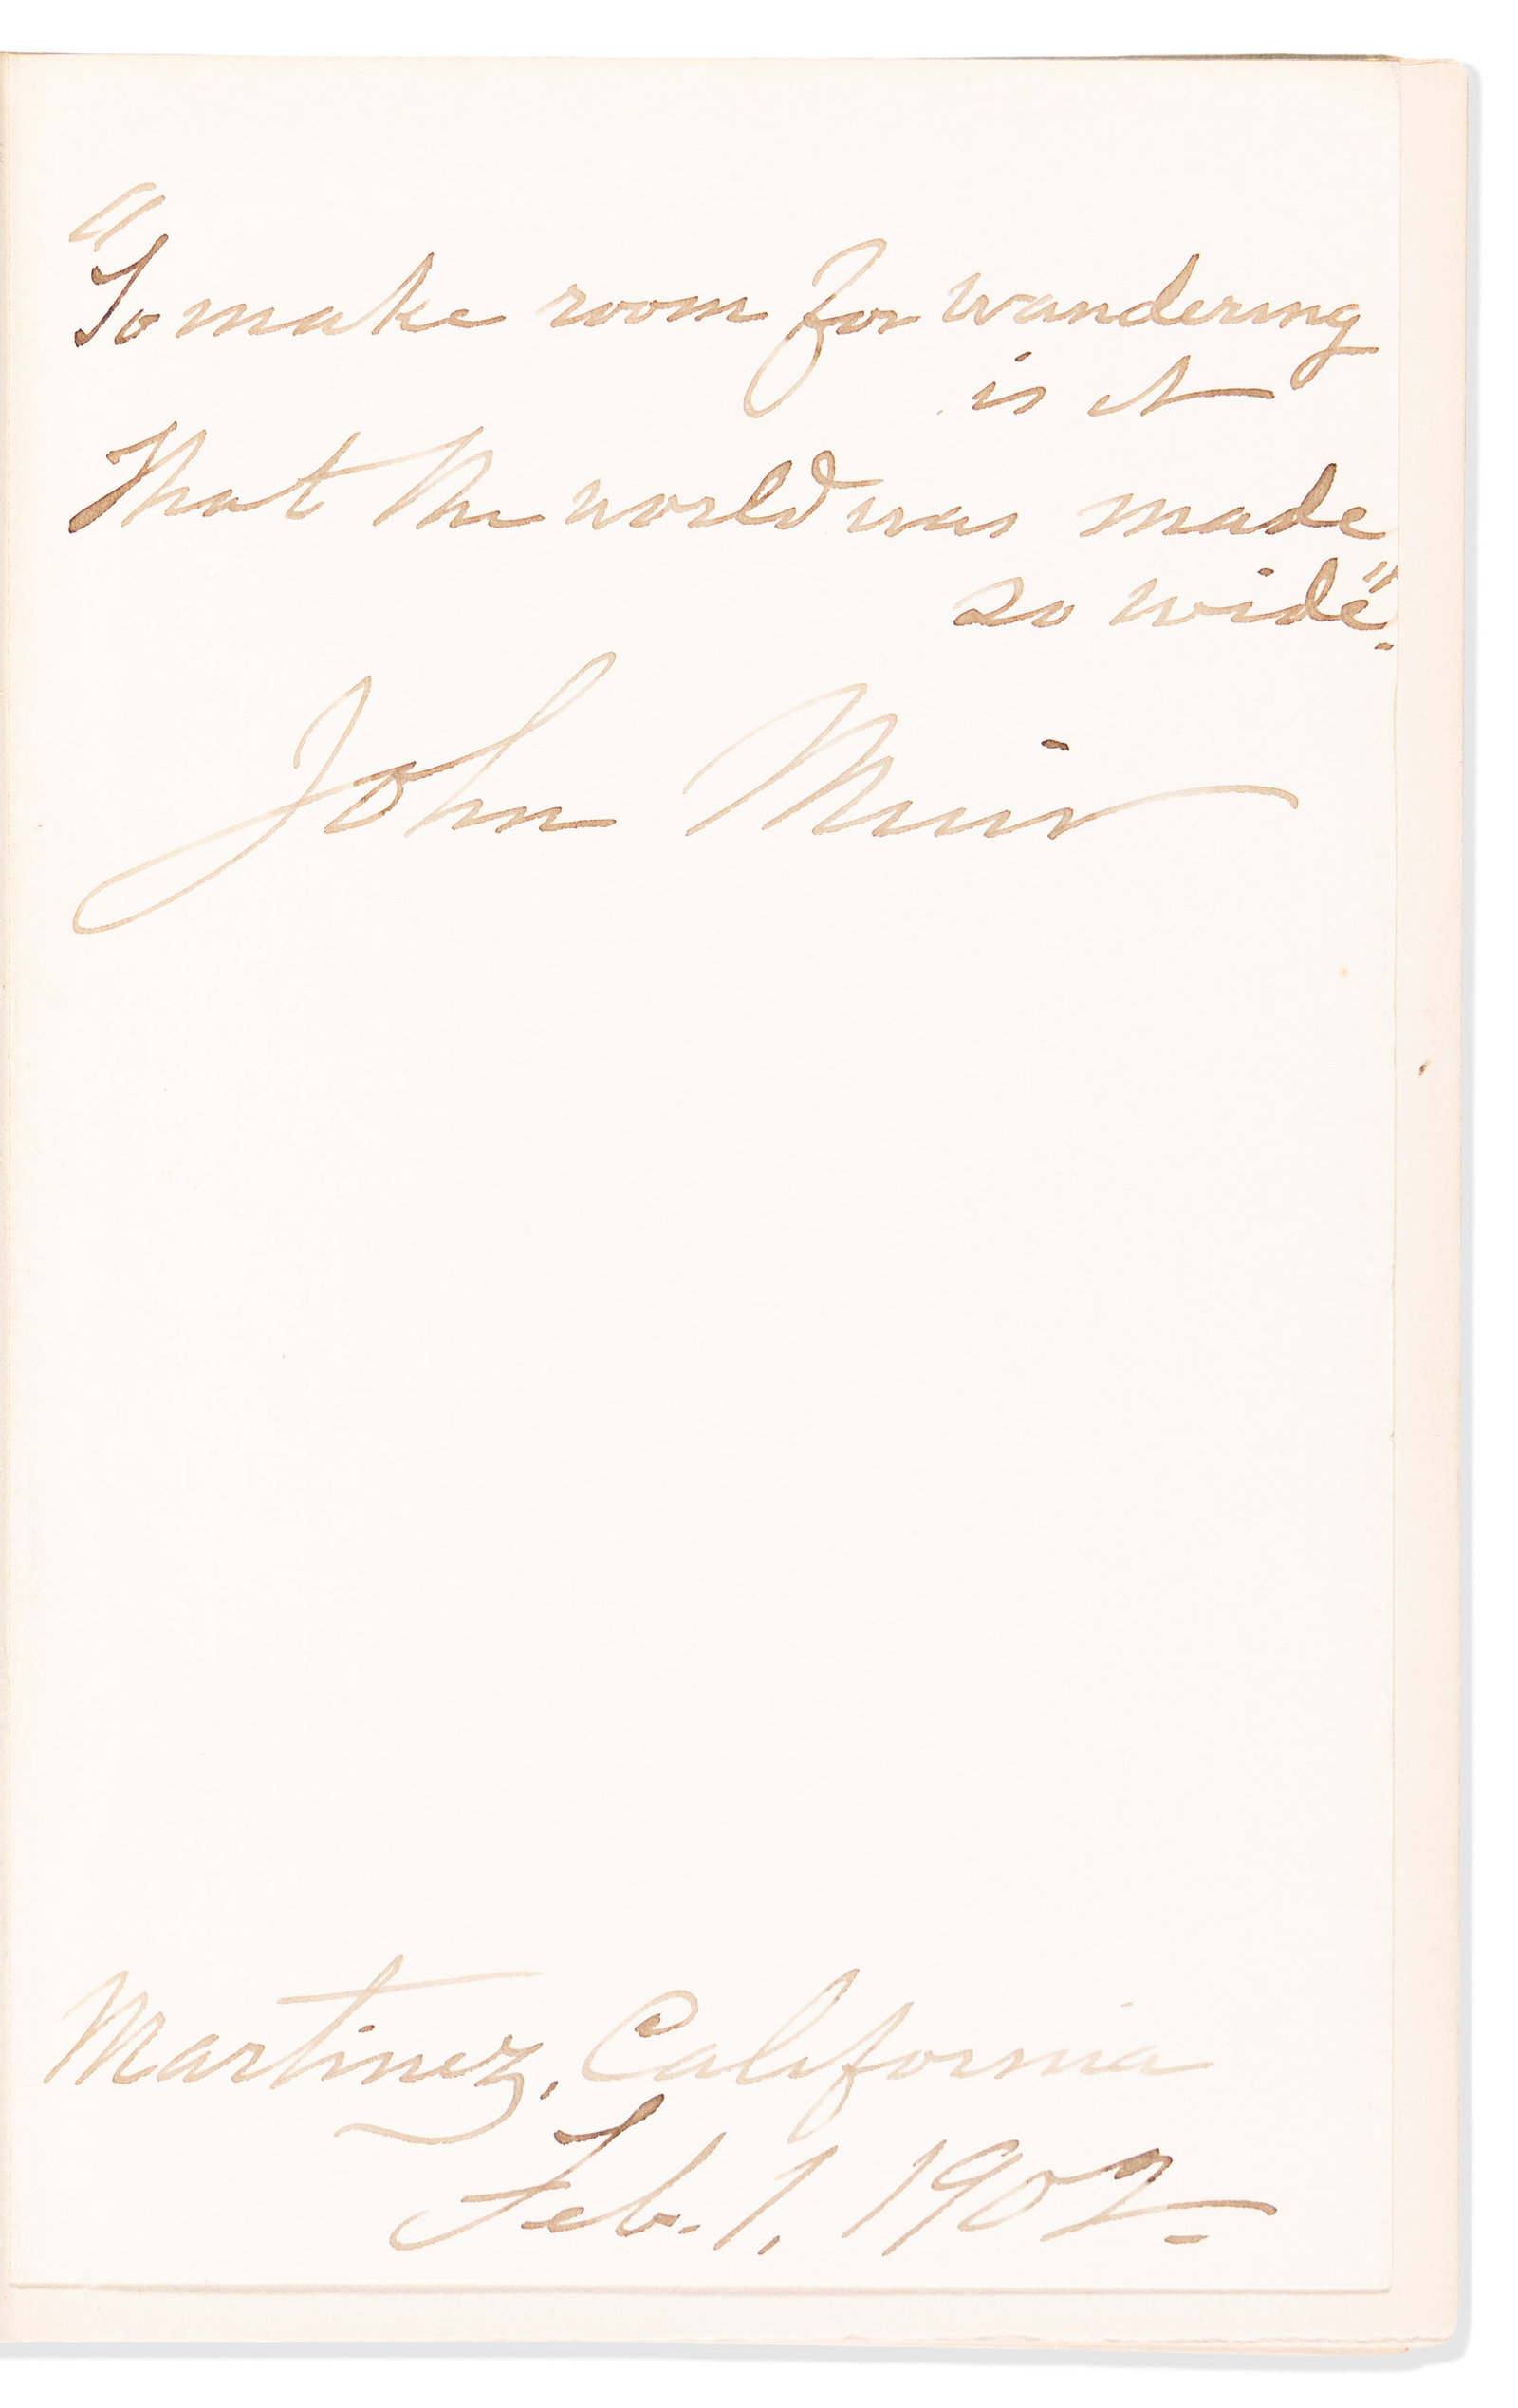 "To make room for wandering
is it
That the world was made
so wide".
John Muir
Martinez, California
Feb. 1, 1902.